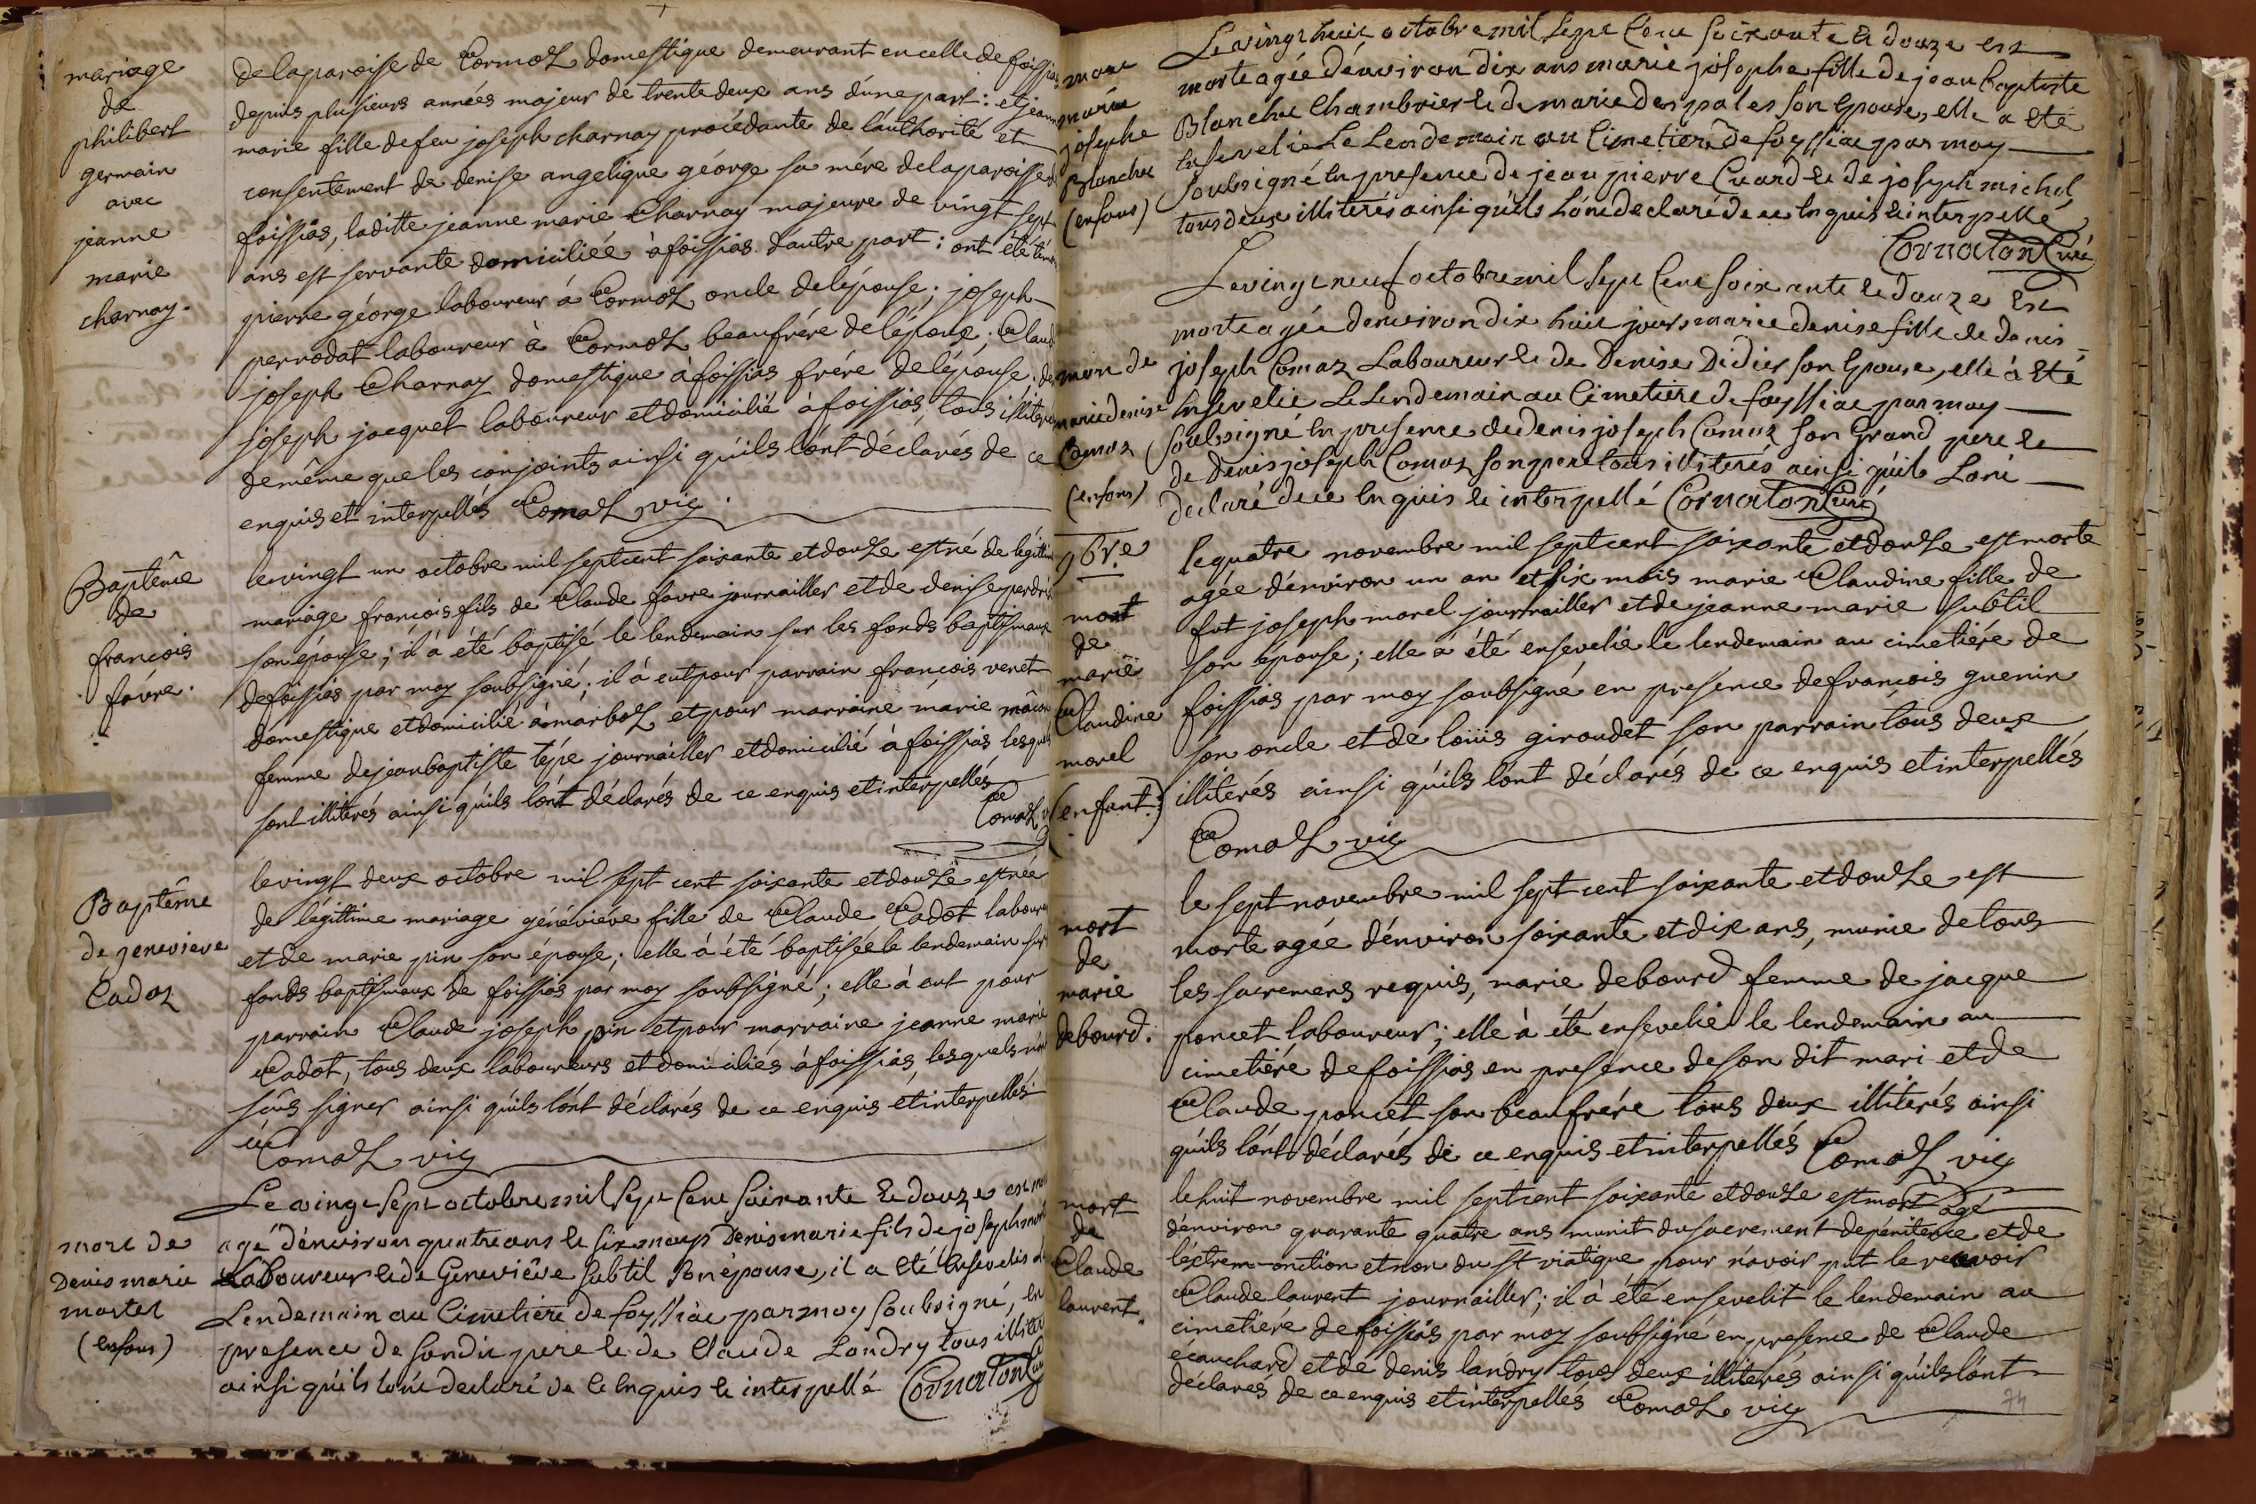 mariage
de
philibert
germain
avec
jeanne
marie
charnay.
de la paroisse de Cormoz domestique demeurant en celle de foissias
depuis plusieurs années majeur de trente deux ans d'une part : et jeanne
marie fille de feu joseph charnay procédante de l'authorité et
consentement de denise angelique géorge sa mére de la paroisse de
foissias, laditte jeanne marie Charnay majeure de vingt sept
ans est servante domiciliée à foissias d'autre part : ont été témoins
pierre géorge laboureur à Cormoz oncle de l'épouse ; joseph
perrodat laboureur à Cormoz beaufrére de l'époux ; Claude
joseph Charnay domestique à foissias frére de l'épouse ; de
joseph jacquet laboureur et domicilié à foissias, tous illiterés
de même que les conjoints ainsi qu'ils l'ont déclarés de ce
enquis et interpellés Comaz vic.
Baptême
de
françois
favre.
le vingt un octobre mil sept cent soixante et douze est né de légitime
mariage francois fils de Claude favre journailler et de denise perdrix
son épouse ; il à été baptisé le lendemain sur les fonds baptismaux
de foissias par moy soubsigné ; il à eut pour parrain francois venet
domestique et domicilié à marboz et pour marraine marie mâcon
femme de jean baptiste tépe journailler et domicilié à foissias lesquels
sont illiterés ainsi qu'ils l'ont déclarés de ce enquis et interpellés
Comaz v
Baptême
de genevieve
Cadoz
le vingt deux octobre mil sept cent soixante et douze est née
de légittime mariage généviéve fille de Claude Cadot laboureur
et de marie pin son épouse ; elle à été baptisée le lendemain sur
fonds baptismaux de foissias par moy soubsigné ; elle à eut pour
parrain Claude joseph pin et pour marraine jeanne marie
Cadot, tous deux laboureurs et domiciliés à foissias, lesquels n'ont
sçûs signer ainsi qu'ils l'ont déclarés de ce enquis et interpellés
Comaz vic
mort de
Denis marie
martel
(enfans)
Le vingt sept octobre mil sept Cent Soixante et douze est mort
agé d'environ quatre ans et six moys Denis marie fils de joseph
Laboureur et de Geneviêve Subtil son épouse, il a été Ensevelis
Lendemain au Cimetiére de foyssiac par moy Soubsigné, en
presence de Sondit pere et de Claude Landry tous illiterés
ainsi qu'ils l'ont declaré de ce Enquis et interpellé Cornaton Curé
mort
marie
josephe
Blanche
(enfans)
Le vingt huit octobre mil Sept Cent Soixante et douze est
morte agée d'environ dix ans marie josephe fille de jean Baptiste
Blanche Chambrier et de marie Despales son Epouse, elle a été
Ensevelie Le Lendemain au Cimetiere de foyssiac par moy
Soubsigné En presence de jean pierre Cuard et de joseph michel,
tous deux illiterés ainsi qu'ils L'ont declaré de ce Enquis et interpellé
Cornaton Curé
mort de
marie denise
Comaz
(enfans)
Le vingt neuf octobre mil Sept Cent Soixante et douze Est
morte agée d'environ dix huit jours marie denise fille de denis
joseph Comaz Laboureur et de Denise Didier son Epouse, elle à été
Ensevelie Le Lendemain au Cimetiere de foyssiac par moy
Soubsigné En presence de denis joseph Comaz son Grand pere et
de Denis joseph Comaz son pere tous illiterés ainsi qu'ils L'ont
declaré de ce Enquis et interpellé Cornaton Curé
9bre
mort
de
marie
Claudine
morel
(enfant.)
le quatre novembre mil sept cent soixante et douze est morte
agée d'environ un an et six mois marie Claudine fille de
fut joseph morel journailler et de jeanne marie subtil
son épouse ; elle à été ensevelie le lendemain au cimetiére de
foissias par moy soubsigné en presence de francois guenin
son oncle et de loüis giroudet son parrain tous deux
illiterés ainsi qu'ils l'ont déclarés de ce enquis et interpellés
Comaz vic
mort
de
marie
debourd.
le sept novembre mil sept cent soixante et douze est
morte agée d'environ soixante et dix ans, munie de tous
les sacremens requis, marie debourd femme de jacque
poncet laboureur ; elle à été ensevelie le lendemain au
cimetiére de foissias en presence de son dit mari et de
Claude poncet son beaufrére tous deux illiterés ainsi
qu'ils l'ont déclarés de ce enquis et interpellés Comaz vic
mort
de
Claude
laurent.
le huit novembre mil sept cent soixante et douze est mort agé
d'environ quarante quatre ans munit du sacrement de pénitence et de
l'éxtrem-onction et non du st viatique pour n'avoir put le recevoir
Claude laurent journailler ; il à été ensevelit le lendemain au
cimetiére de foissias par moy soubsigné en presence de Claude
ecauchard et de denis landry tous deux illiterés ainsi qu'ils l'ont
déclarés de ce enquis et interpellés Comaz vic
74